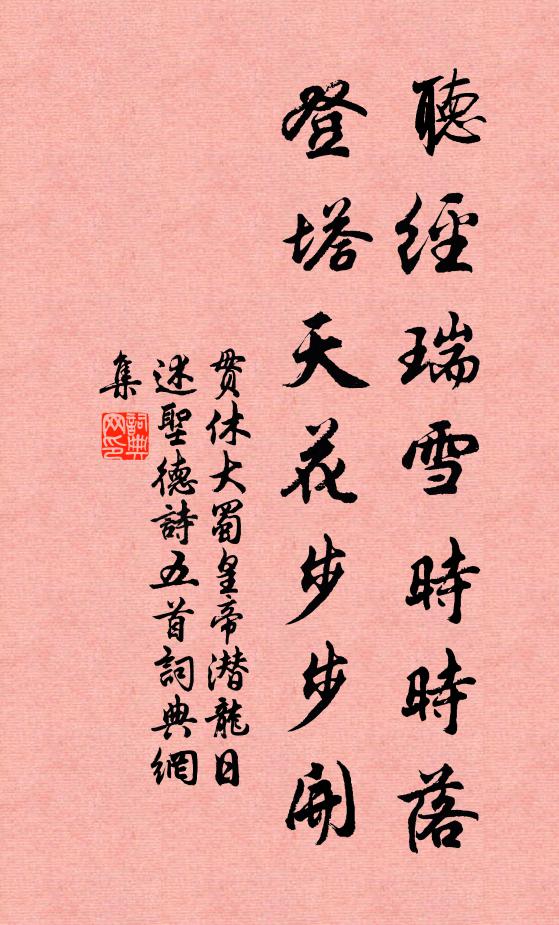 聽經瑞雪時時落
登塔天花步步開
貫休大蜀皇帝潜龍日
述聖德詩五首詞典網
集
詞典
网印